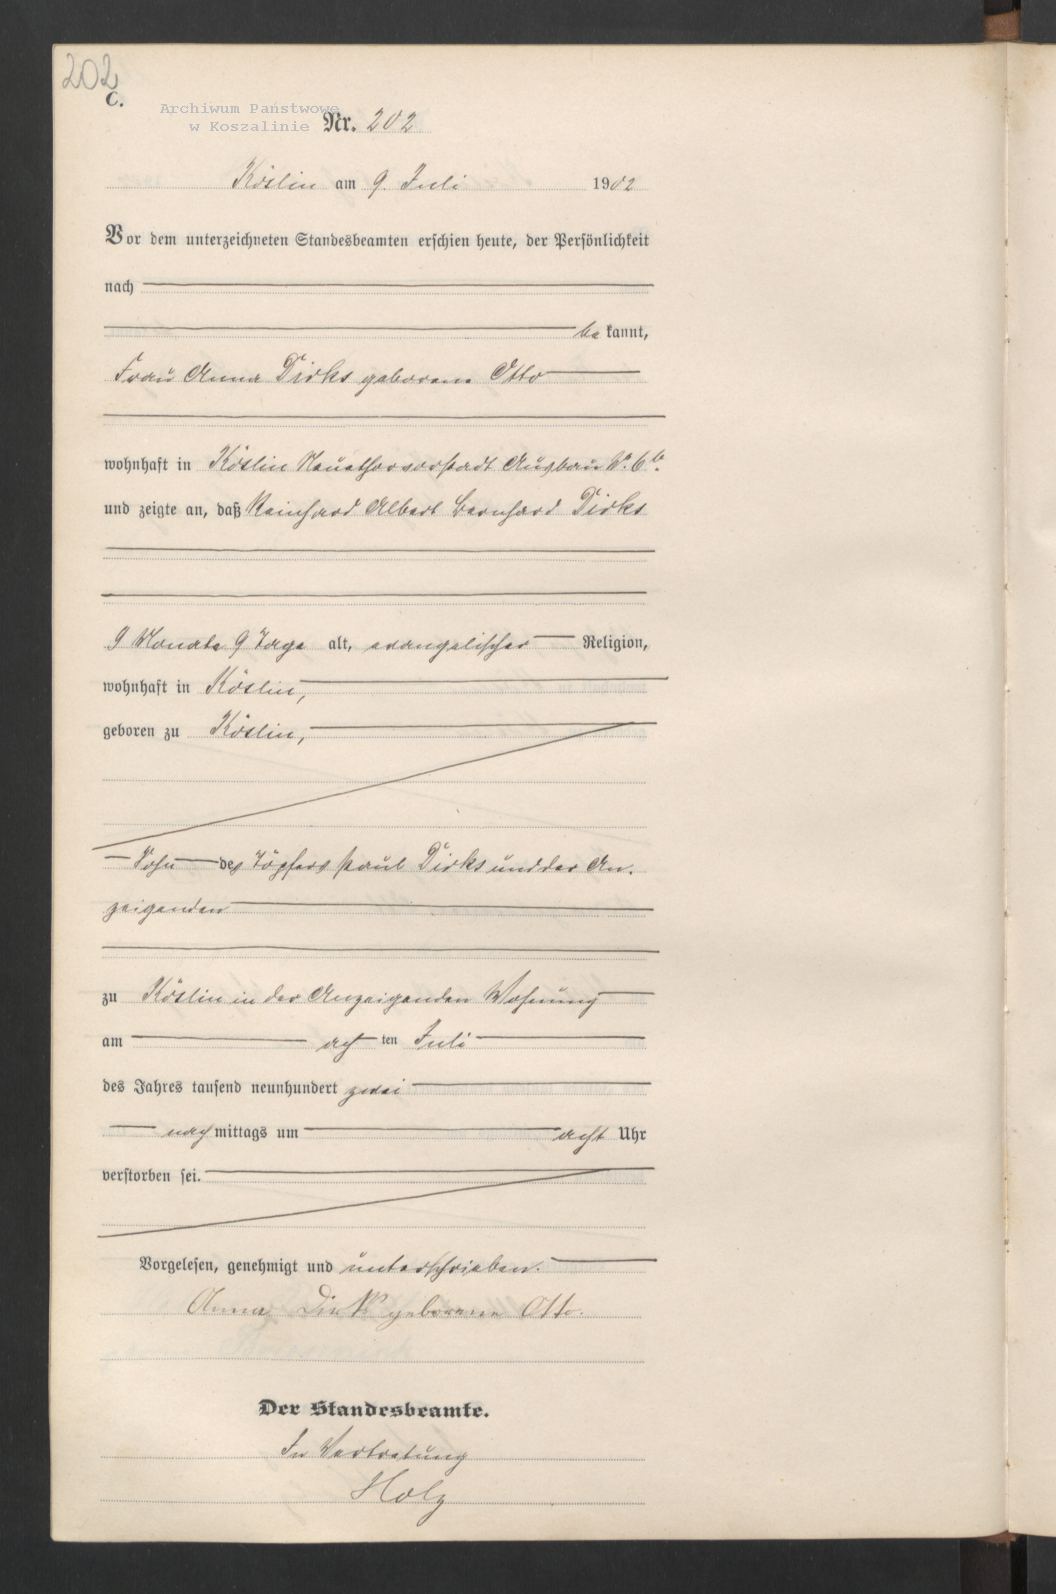 202
C.
Archiwum Państwowe
w Koszalinie
Nr. 202
Köslin am 9. Juli 1902
Vor dem unterzeichneten Standesbeamten erschien heute, der Persönlichkeit
nach
be kannt,
Frau Anna Dirks geborene Otto
wohnhaft in Köslin Neuethorvorstadt Ausbau No. 6b.
und zeigte an, daß Reinhard Albert Bernhard Dirks
9 Monate 9 Tage alt, evangelischer Religion,
wohnhaft in Köslin,
geboren zu Köslin,
Sohn des Töpfers Paul Dirks und der An-
zeigenden
zu Köslin in der Anzeigenden Wohnung
am ach ten Juli
des Jahres tausend neunhundert zwei
nach mittags um acht Uhr
verstorben sei.
Vorgelesen, genehmigt und unterschrieben.
Anna Dirks geborene Otto.
Der Standesbeamte.
In Vertretung
Holz